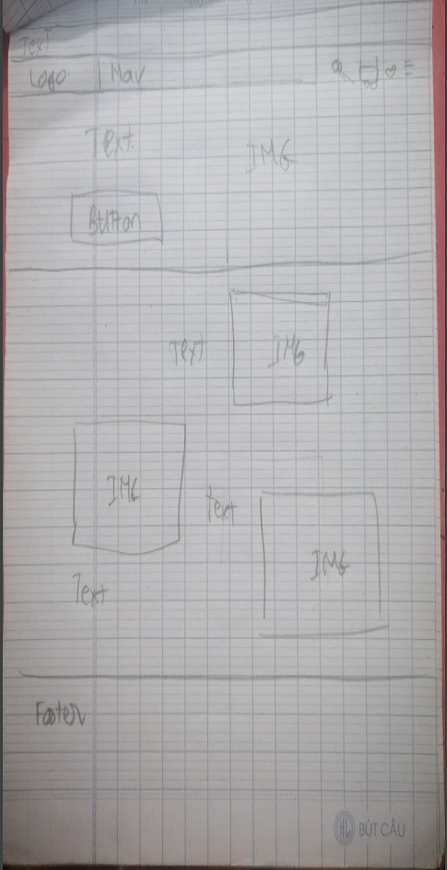 Text
Logo Nav
Text
IMG
Button
Text
IMG
IMG
Text
IMG
Text
Footer
BÚT CÂU